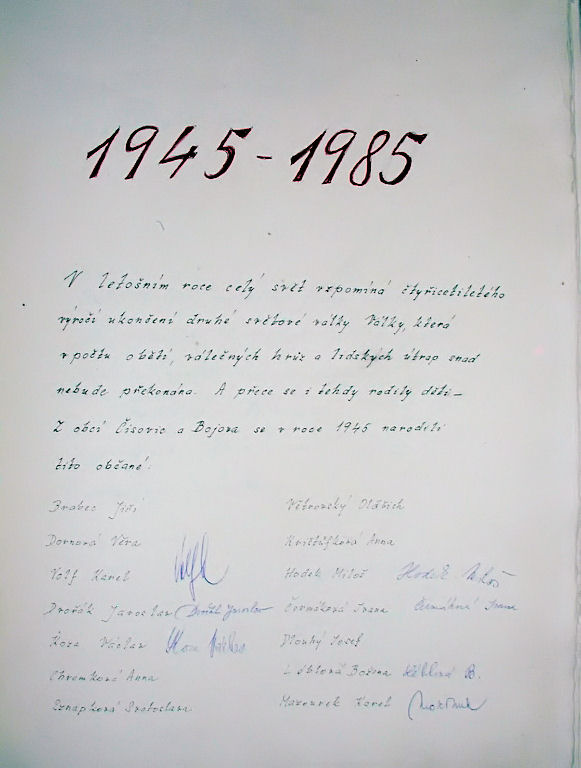 1945 - 1985
V letošním roce celý svět vzpomíná čtyřicetiletého
výročí ukončení druhé světové války Války, která
v počtu obětí, válečných hrůz a lidských útrap snad
nebude překonána. A přece se i tehdy rodily děti -
Z obcí Čisovic a Bojova se v roce 1945 narodili
tito občané:
Brabec Jiří
Dornová Věra
Volf Karel
Dvořák Jaroslav Dvořák Jaroslav
Václav
Chromková Anna
Větrovský Oldřich
Krištůfková Anna
Hodek Miloš Hodek Miloš
Čermáková Ivana Čermáková Ivana
Dlouhý Josef
Božena B.
Mazourek Karel